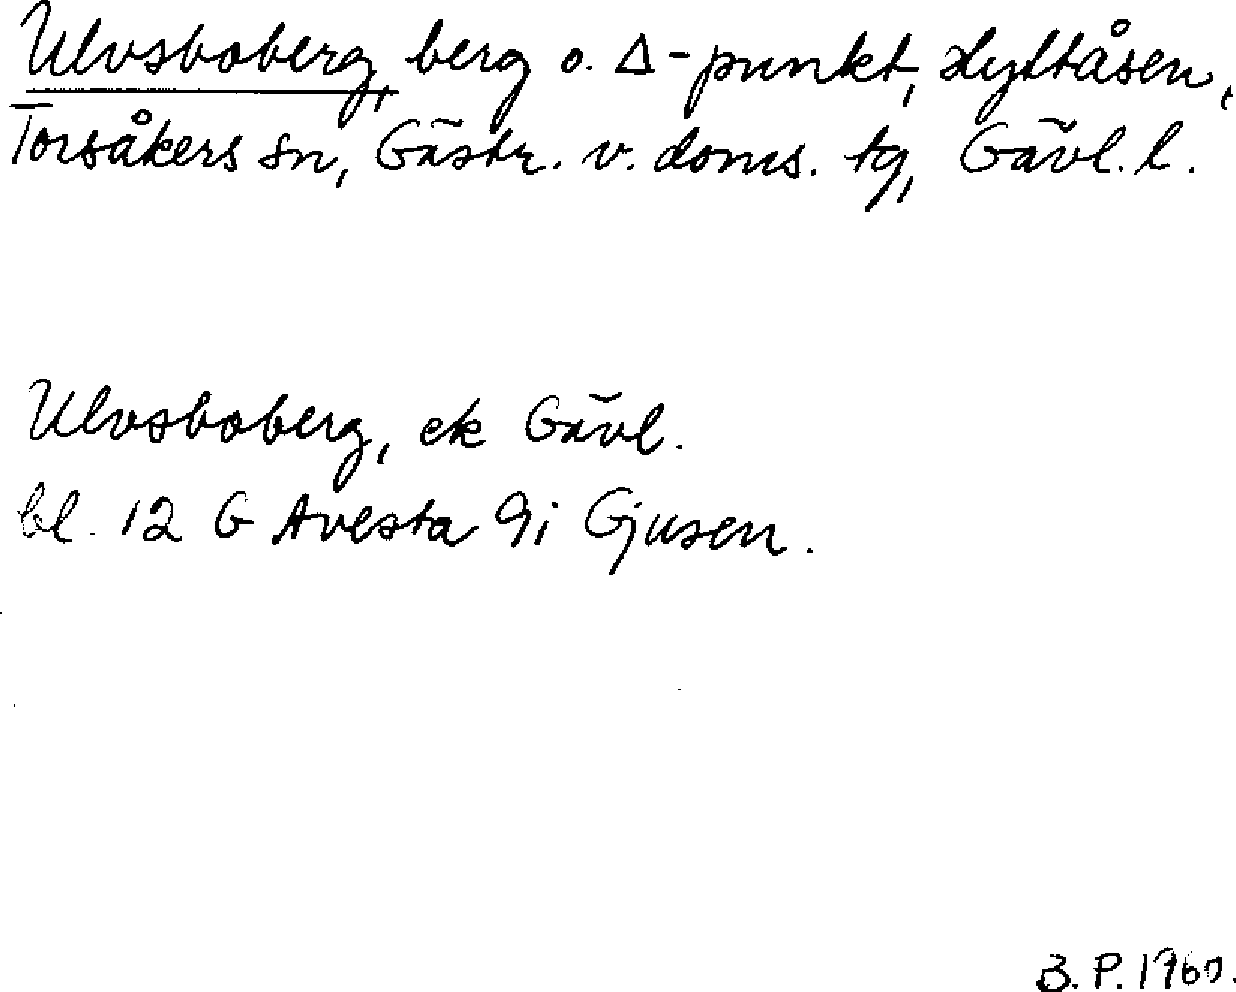 Ulvsboberg, berg o. Δ-punkt, Lyltåsen,
Torsåkers sn, Gästr. v. doms. tg, Gävl. l.
Ulvsboberg, ek Gävl.
bl. 12 G Avesta 9i Gjusen.
B. P. 1960.